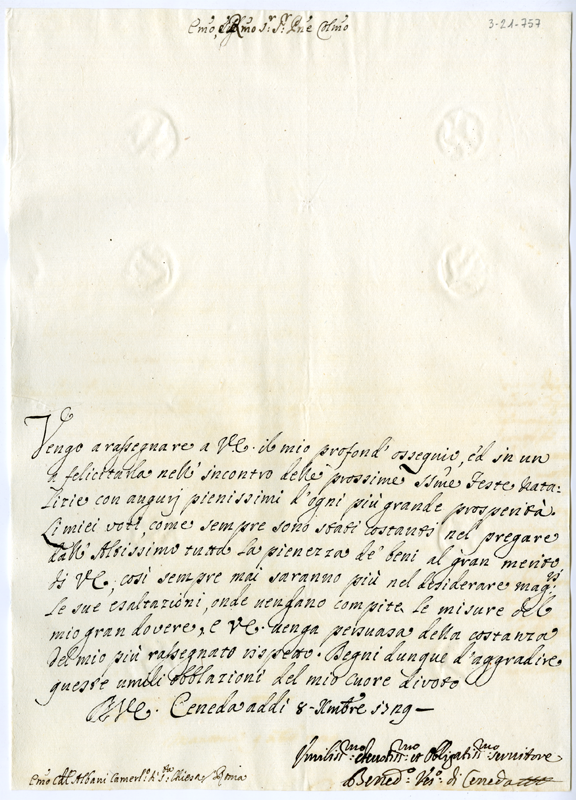 3-21-757
Emo, e Rmo Sr: Sr: Pne Colmo
Vengo a rassegnare a VE. il mio profond' ossequio, ed in un
felicitarla nell' incontro delle prossime SSme Feste Nata-
lizie con augurj pienissimi d'ogni più grande prosperità.
Li miei voti, come sempre sono stati costanti nel pregare
dall' Altissimo tutta la pienezza de' beni al gran merito
di VE, così sempre mai saranno più nel desiderare magri
le sue esaltazioni, onde vengano compite le misure del
mio gran dovere, e VE. venga persuasa della costanza
del mio più rassegnato rispetto. Degni dunque d'aggradire
queste umili obblazioni del mio cuore divoto
VE. Ceneda addi 8 Xmbre 1729
Umiliss:mo devotiss:mo et obligatiss:mo servitore
Bened:o Vo: di Ceneda
Emo Cdl Albani Camerlo: di Sta Chiesa Roma